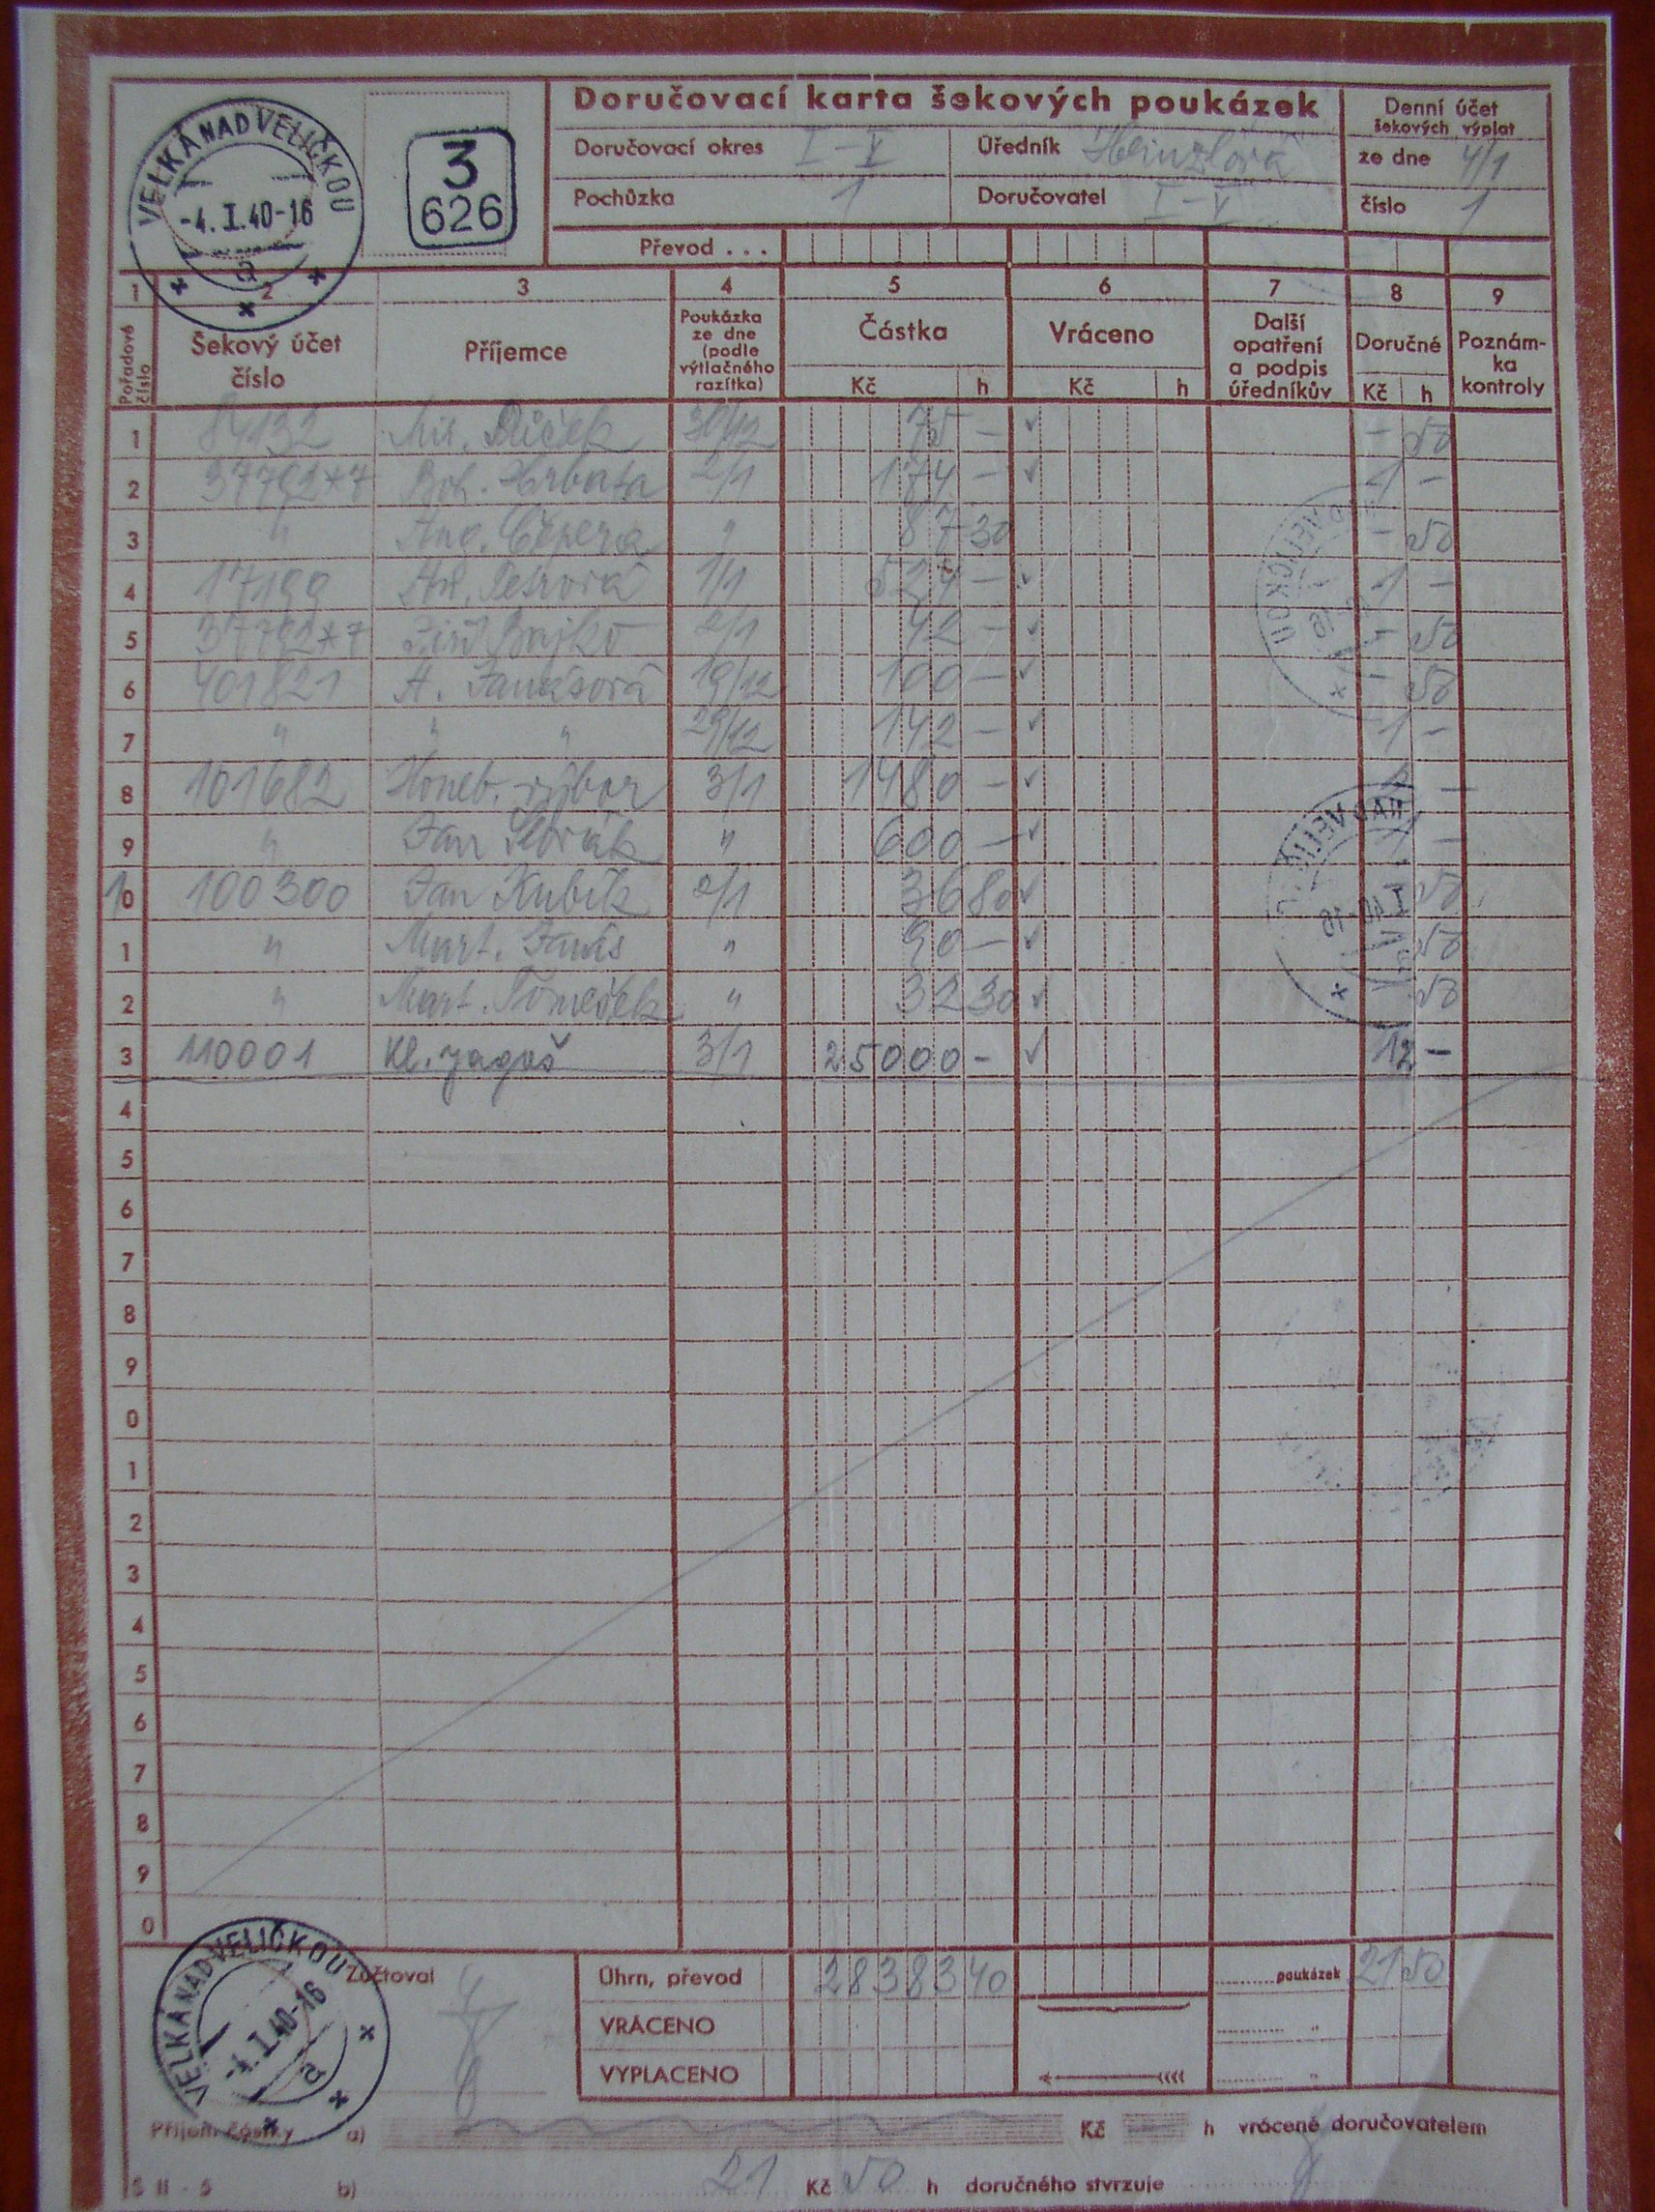 Doručovací karta šekových poukázek
Denní účet
šekových výplat
VELKÁ NAD VELIČKOU
-4.I.40-16
a
3
626
Doručovací okres I-V
Úředník
ze dne 4/1
Pochůzka 1
Doručovatel I-V
číslo 1
Převod . . .
1 2 3 4 5 6 7 8 9
Pořadové číslo
Šekový účet číslo
Příjemce
Poukázka ze dne (podle výtlačného razítka)
Částka
Kč h
Vráceno
Kč h
Další opatření a podpis úředníkův
Doručné
Kč h
Poznámka kontroly
1 84132 30/12 75 - - 50
2 37792*7 Boh. Hrbata 2/1 174 - 1 -
3 " Ang. Čepera " 87 30 - 50
4 17199 Petrová 1/1 524 - 1 -
5 37792*7 2/1 42 - - 50
6 401821 A. Janásová 19/12 100 - - 50
7 " " " 29/12 142 - 1 -
8 101682 výbor 3/1 1480 -
9 " Jan " 600 - 1 -
10 100300 Jan Kubík 2/1 36 80 50
1 " Mart. Janás " 90 - 50
2 " Mart. Tomeček " 32 30 50
3 110001 Kl. Jagoš 3/1 25000 - 12 -
4
5
6
7
8
9
0
1
2
3
4
5
6
7
8
9
0
VELKÁ NAD VELIČKOU
-4.I.40-16
a
Zúčtoval
Úhrn, převod 28383 40
poukázek 21 50
VRÁCENO "
VYPLACENO "
Příjem částky a) Kč h vrácené doručovatelem
S II - 5 b) 21 Kč 50 h doručného stvrzuje